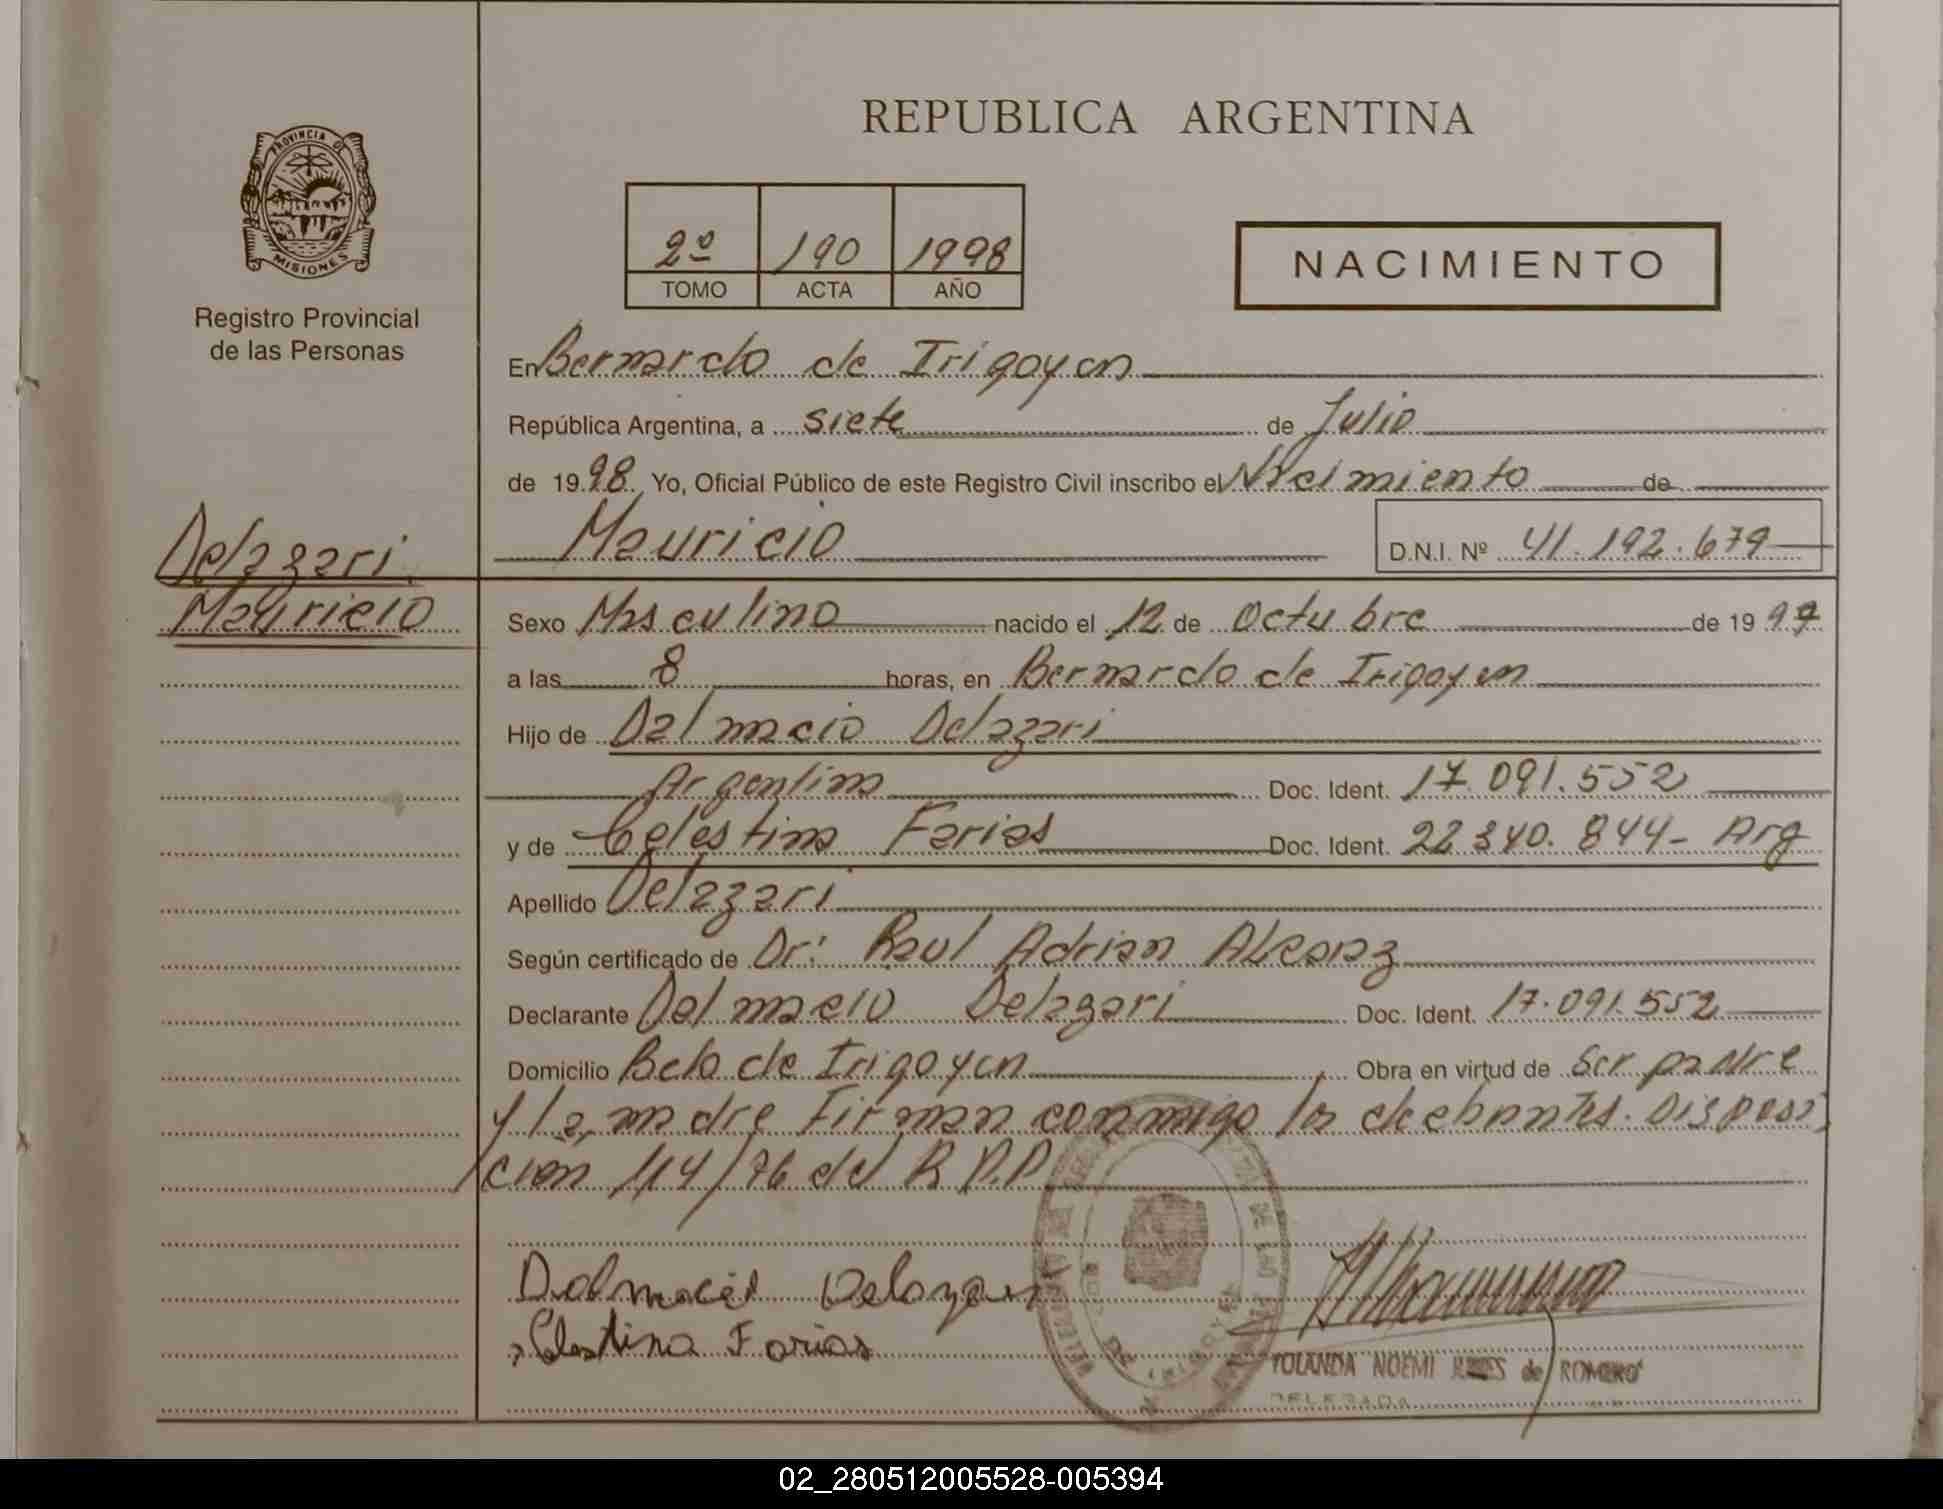 PROVINCIA DE
MISIONES
Registro Provincial
de las Personas
Delazari
Mauricio
REPUBLICA ARGENTINA
2º 190 1998
TOMO ACTA AÑO
NACIMIENTO
En Bernardo de Irigoyen
República Argentina, a siete de Julio
de 19 98 Yo, Oficial Público de este Registro Civil inscribo el Nacimiento de
Mauricio D.N.I. Nº 41.192.679
Sexo Masculino nacido el 12 de Octubre de 19 97
a las 8 horas, en Bernardo de Irigoyen
Hijo de Dalmacio Delazari
Argentina Doc. Ident. 17.091.552
y de Celestina Farias Doc. Ident. 22.340.844- Arg
Apellido Delazari
Según certificado de Dr: Raul Adrian
Declarante Dalmacio Delazari Doc. Ident. 17.091.552
Domicilio Bdo de Irigoyen Obra en virtud de Ser padre
y la madre Firman conmigo los Disposi
cion 114/76 del R.P.P.
Dalmacio Delazari
Celestina Farias
YOLANDA NOEMI de ROMERO
DELEGADA
02_280512005528-005394